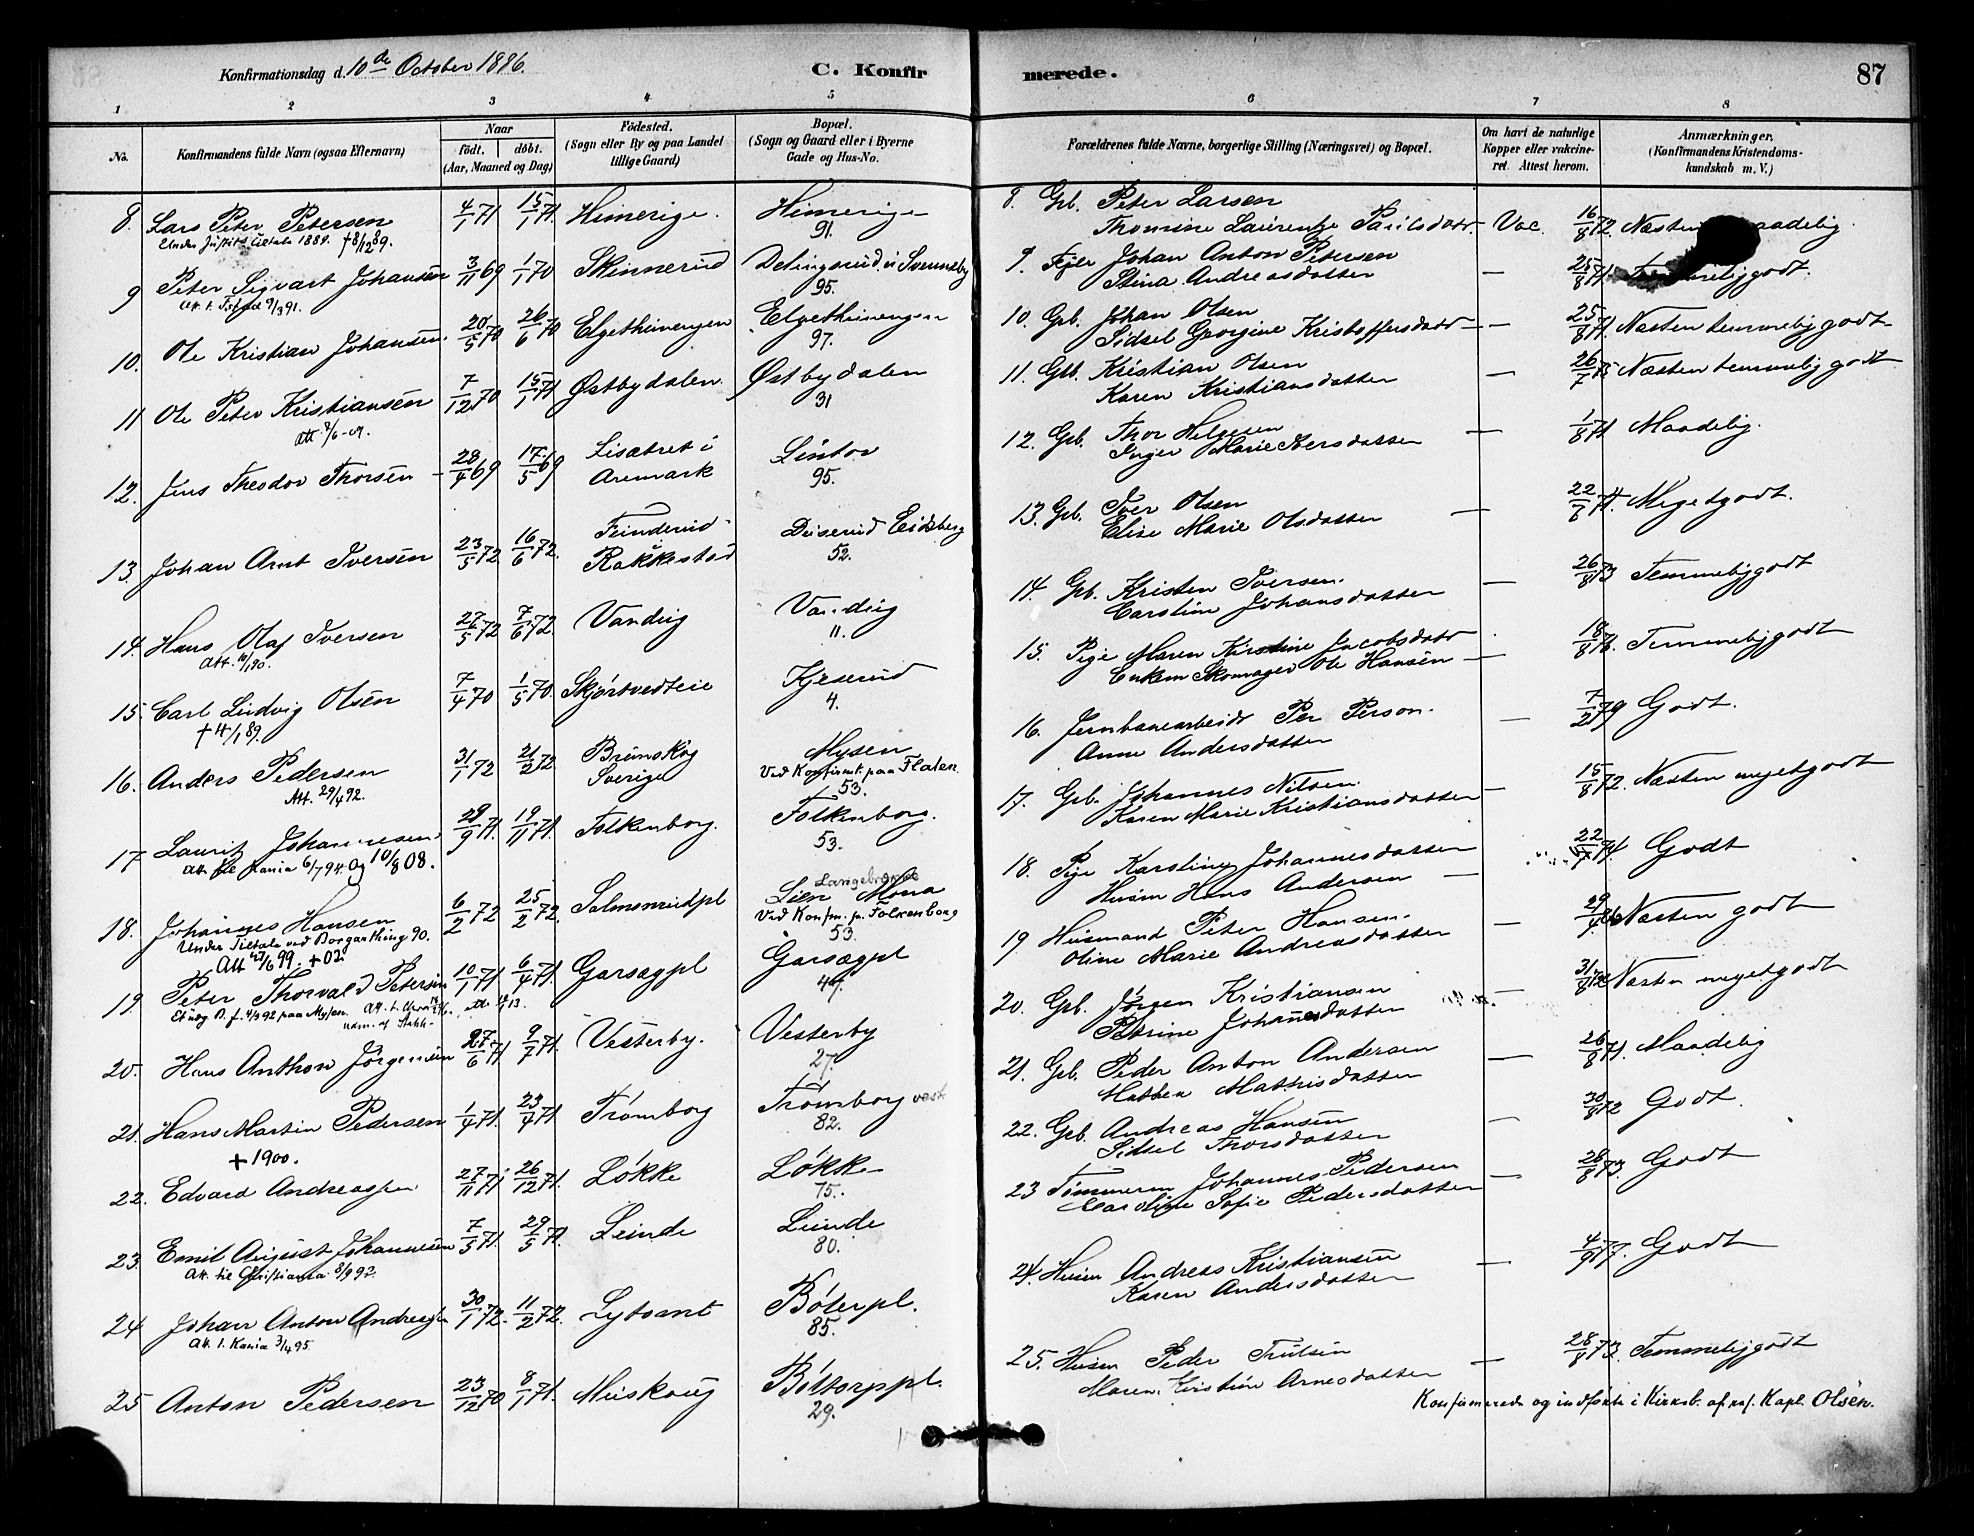 Konfirmationsdag d. 10de October 1886.
C. Konfir
merede.
87
1 2 3 4 5 6 7 8
No.
Konfirmandens fulde Navn (ogsaa Efternavn)
Naar
født. døbt.
(Aar, Maaned og Dag)
Fødested.
(Sogn eller By og paa Landet
tillige Gaard)
Bopæl.
(Sogn og Gaard eller i Byerne
Gade og Hus-No.
Forældrenes fulde Navne, borgerlige Stilling (Næringsvei) og Bopæl.
Om havt de naturlige
Kopper eller vakcine-
ret. Attest herom.
Anmærkninger.
(Konfirmandens Kristendoms-
kundskab m. V.)
8. Lars Peter Petersen 4/1 71 15/1 71. Himerige. Himerige 91.
Under Justits tiltale 1889. † 8/12 89.
8. Gb. Peter Larsen
Thomine Laurentze Paulsdatr. Vac. 16/8 72. Næsten maadelig
9 Peter Sigvart Johansen 3/11 69 1/1 70 Skinnerud 95.
9. Johan Anton Petersen
Stina Andreasdatter — 25/8 71. godt.
10. Ole Kristian Johansen. 20/5 70 26/6 70 97.
10. Gb. Johan Olsen
Sidsel Georgine Kristoffersdatr — 25/8 71 Næsten temmelig godt
11 Ole Peter Kristiansen 7/12 70 15/1 71 Østbydalen Østbydalen 31
Att 2/6-09.
11. Gb. Kristian Olsen
Karen Kristiansdatter — 26/7 Næsten temmelig godt
12. Jens Theodor Thorsen 28/4 69 17/5 69 i Aremark Lintor 95.
12. Gb. Thor Helgesen
Inger Marie Iversdatter — 1/8 71 Maadelig.
13. Johan Arnt Iversen 23/5 72 16/6 72. Rakkestad Eidsberg 52.
13. Gb. Iver Olsen
Elise Marie Olsdatter — 22/8 Meget godt.
14. Hans Olaf Iversen 27/5 72 7/6 72 Vandug Vandug 11.
14. Gb. Kristen Iversen.
Caroline Johansdatter — 26/8 73 Temmelig godt
15. Carl Ludvig Olsen 7/4 70 1/5 70. Skjørtvedteie Kjeserud 4.
† 14/1 89.
15. Pige Maren Kirstine Jacobsdatr
Enkem Skomager Ole Hansen — 18/8 Temmelig godt
16. Anders Pedersen 31/1 72 21/2 72. Sverige Mysen
Ved Konfirmt. paa Flaten. 53.
Att. 29/4 92.
16. Jernbanearbeidr Per Person.
Anne Andersdatter — 7/2 79 Godt.
17. Laurits Johannesen 28/9 71. 19/11 71. Folkenborg. Folkenborg. 53.
Att. til Kania 6/7 94. Og 10/8 08.
17. Gb. Johannes Nilsen
Karen Marie Kristiansdatter — 15/8 72. Næsten meget godt
18. Johannes Hansen 6/2 72 25/2 72. Salmonrudpl Lien Mona
Ved Konfm. p. Folkenborg 53.
Under Tiltale ved Borgarthing 90.
Att 27/6 99. † 02
18. Pige Karoline Johannesdatter
Husm Hans Andersen — 22/7 74 Godt
19. Peter Thorvald Petersen 10/1 71 6/4 71. Garsegpl Garsegpl 47.
19 Husmand Peter Hansen.
Oline Marie Andreasdatter — 29/4 Næsten godt
20. Hans Anthon Jørgensen 27/6 71 9/7 71. Vesterby. Vesterby 27.
20. Gb. Jørgen Kristiansen
Petrine Johannesdatter — 31/8 72 Næsten meget godt
21. Hans Martin Pedersen 1/4 71. 23/4 71. Trømborg Trømborg vest 82.
† 1900.
21. Gb. Peder Anton Andersen
Mathea Mathisdatter — 26/8 71. Maadelig
22. Edvard Andreassen 27/11 71 26/12 71. Løkke Løkke 75.
22. Gb. Andreas Hansen
Sidsel Thorsdatter — 30/8 72 Godt.
23. Emil August Johannesen 7/5 71. 29/5 71. Leinde Leinde 80.
Att. til Christiania 8/9 92
23 Tømmerm Johannes Pedersen
Caroline Sofie Pedersdatter 28/8 73. Godt
24 Johan Anton Andreassen 30/1 72. 11/2 72. Lytsant Bøterpl. 85.
Att. t. Kania 3/4 95.
24. Husm Andreas Kristiansen
Karen Andersdatter — 4/9 77. Godt
25 Anton Pedersen 23/12 70 8/1 71. Muskoug Bøltorppl. 29.
25. Husm Peder Trulsen
Maren Kristine Arnesdatter — 28/8 73. Temmelig godt
Konfirmerede og indførte i Kirkeb. af res. Kapl. Olsen.